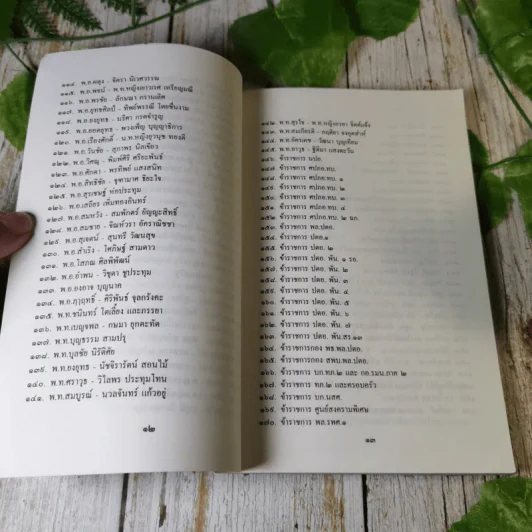 ๑๑๔. พ.อ.ผดุง - จิตรา นิเวศวรรณ
๑๑๕. พ.อ.พจน์ - พ.ท.หญิงเยาวเรศ เหรียญมณี
๑๑๖. พ.อ.พรชัย - ลักษณา กรานเลิศ
๑๑๗. พ.อ.ยุทธศิลป์ - ทิพย์พรรณี โดยชื่นงาม
๑๑๘. พ.อ.ยงยุทธ - นริศา กรดจำรูญ
๑๑๙. พ.อ.ยอดยุทธ - พวงเพ็ญ บุญญาธิการ
๑๒๐. พ.อ.เรืองศักดิ์ - น.ท.หญิงวาบุช ทองดี
๑๒๑. พ.อ.วันชัย - สุภาพร นิลเขียว
๑๒๒. พ.อ.วิศณุ - พิมพ์ศิริ ศรียะพันธ์
๑๒๓. พ.อ.ศักดา - พรทิพย์ แสงสนิท
๑๒๔. พ.อ.สิทธิชัย - จุฑามาศ ชีอะใจ
๑๒๕. พ.อ.สุรเชษฐ์ ห่อประทุม
๑๒๖. พ.อ.เสถียร เพิ่มทองอินทร์
๑๒๗. พ.อ.สมหวัง - สมพักตร์ อัญญะสิทธิ์
๑๒๘. พ.อ.สมชาย - จันห์วรา อัศราณิชชา
๑๒๙. พ.อ.สุเจตน์ - สุนทรี วัฒนสุข
๑๓๐. พ.อ.สำเริง - โศภิษฐ์ สามดาว
๑๓๑. พ.อ.โสภณ ศิลพิพัฒน์
๑๓๒. พ.อ.อำพน - วิชุดา ชูประทุม
๑๓๓. พ.อ.องอาจ บุญนาค
๑๓๔. พ.อ.ฤาฤทธิ์ - ศิริพันธ์ จุลกรังคะ
๑๓๕. พ.ท.ชนินทร์ โตเลี้ยง และภรรยา
๑๓๖. พ.ท.เบญจพล - กษมา ยุกตะทัต
๑๓๗. พ.ท.บุญธรรม สามปรุ
๑๓๘. พ.ท.บุลชัย นิรัติศัย
๑๓๙. พ.ท.ยงยุทธ - นัชจิรารัตน์ สอนไม้
๑๔๐. พ.ท.ศราวุธ - วิไลพร ประทุมโทน
๑๔๑. พ.ท.สมบูรณ์ - นวลจันทร์ แก้วอยู่
๑๒
๑๔๒. พ.อ.สุรใจ - พ.อ.หญิงอรยา จิตต์แจ้ง
๑๔๓. พ.อ.สมเกียรติ - อฤติยา จงกุลสำห์
๑๔๔. พ.อ.อัครเดช - วัฒนา บุญเทียม
๑๔๕. พ.อ.อาวุธ - ฐิติมา แสงตะวัน
๑๔๖. ข้าราชการ นปอ.
๑๔๗. ข้าราชการ ศปภอ.ทบ.
๑๔๘. ข้าราชการ ศปภอ.ทบ. ๑
๑๔๙. ข้าราชการ ศปภอ.ทบ. ๒
๑๕๐. ข้าราชการ ศปภอ.ทบ. ๓
๑๕๑. ข้าราชการ ศปภอ.ทบ. ๔
๑๕๒. ข้าราชการ ศปภอ.ทบ. ๒ ฉก.
๑๕๓. ข้าราชการ พล.ปตอ.
๑๕๔. ข้าราชการ ปตอ.๑
๑๕๕. ข้าราชการ ปตอ. ๒
๑๕๖. ข้าราชการ ปตอ. พัน. ๑ รอ.
๑๕๗. ข้าราชการ ปตอ. พัน. ๒
๑๕๘. ข้าราชการ ปตอ. พัน. ๓
๑๕๙. ข้าราชการ ปตอ. พัน. ๔
๑๖๐. ข้าราชการ ปตอ. พัน. ๕
๑๖๑. ข้าราชการ ปตอ. พัน. ๖
๑๖๒. ข้าราชการ ปตอ. พัน. ๗
๑๖๓. ข้าราชการ ปตอ.พัน.สร.๑๓
๑๖๔. ข้าราชการกอง พธ.พล.ปตอ.
๑๖๕. ข้าราชการกอง สพบ.พล.ปตอ.
๑๖๖. ข้าราชการ บก.ทภ.๒ และ กอ.รมน.ภาค ๒
๑๖๗. ข้าราชการ ทภ.๒ และครอบครัว
๑๖๘. ข้าราชการ บก.นสศ.
๑๖๙. ข้าราชการ ศูนย์สงครามพิเศษ
๑๗๐. ข้าราชการ พล.รพศ.๑
๑๓